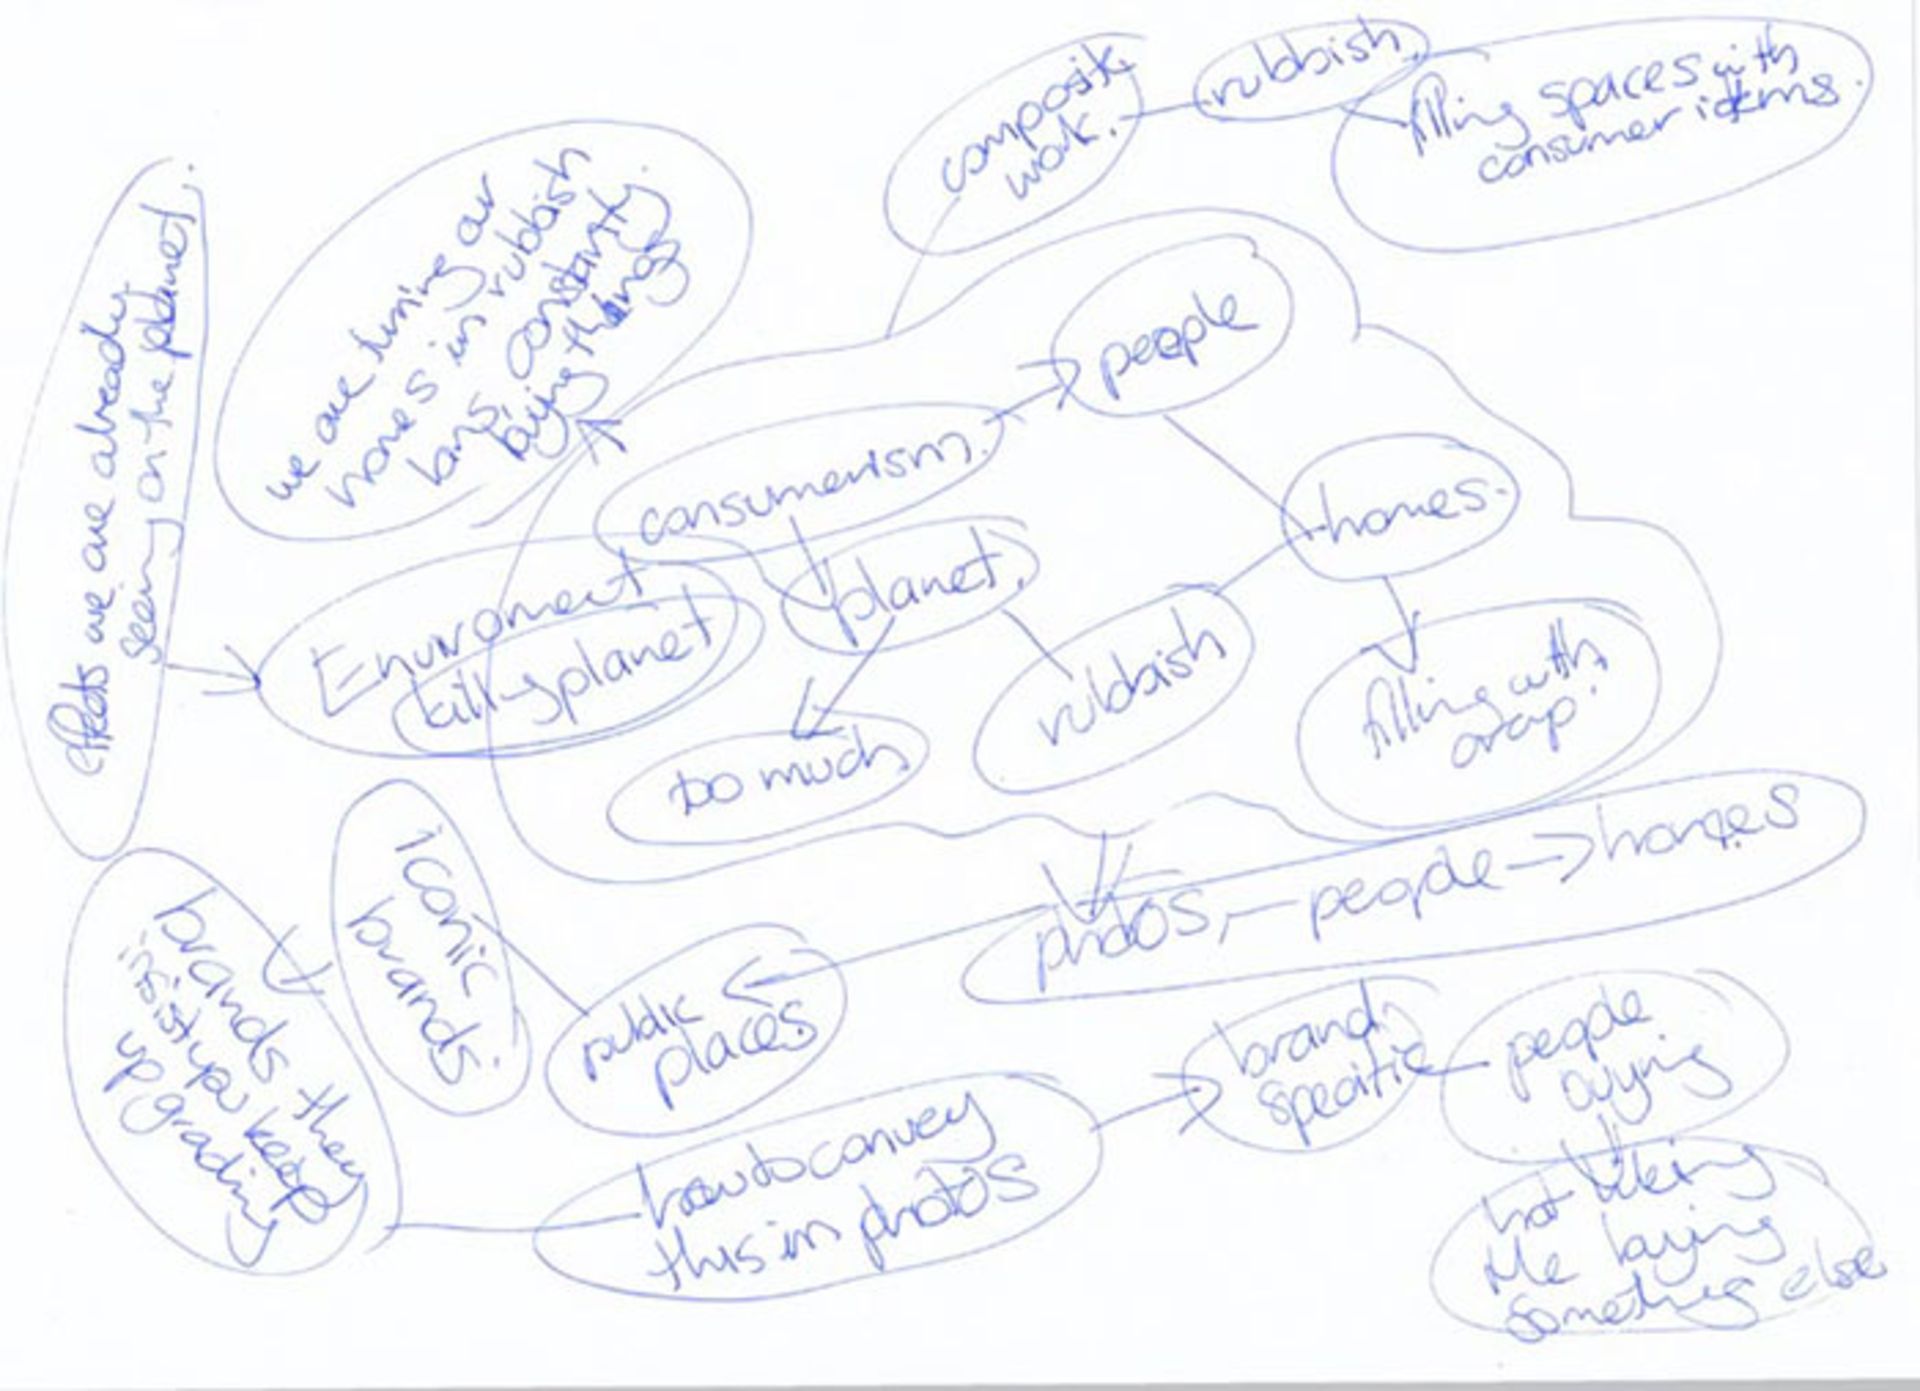 composite
work.
rubbish.
filling spaces with
consumer items.
effects we are already
seeing on the planet.
we are turning our
homes in rubbish
bins, constantly
buying things
people
consumerism.
homes.
planet.
Enviroment
killing planet
rubbish
filling with
crap.
too much
photos, - people → homes
iconic
brands.
public
places
brands they
insist you keep
up grading
how to convey
this in photos
brand
specific
people
buying
not
like buying
something else